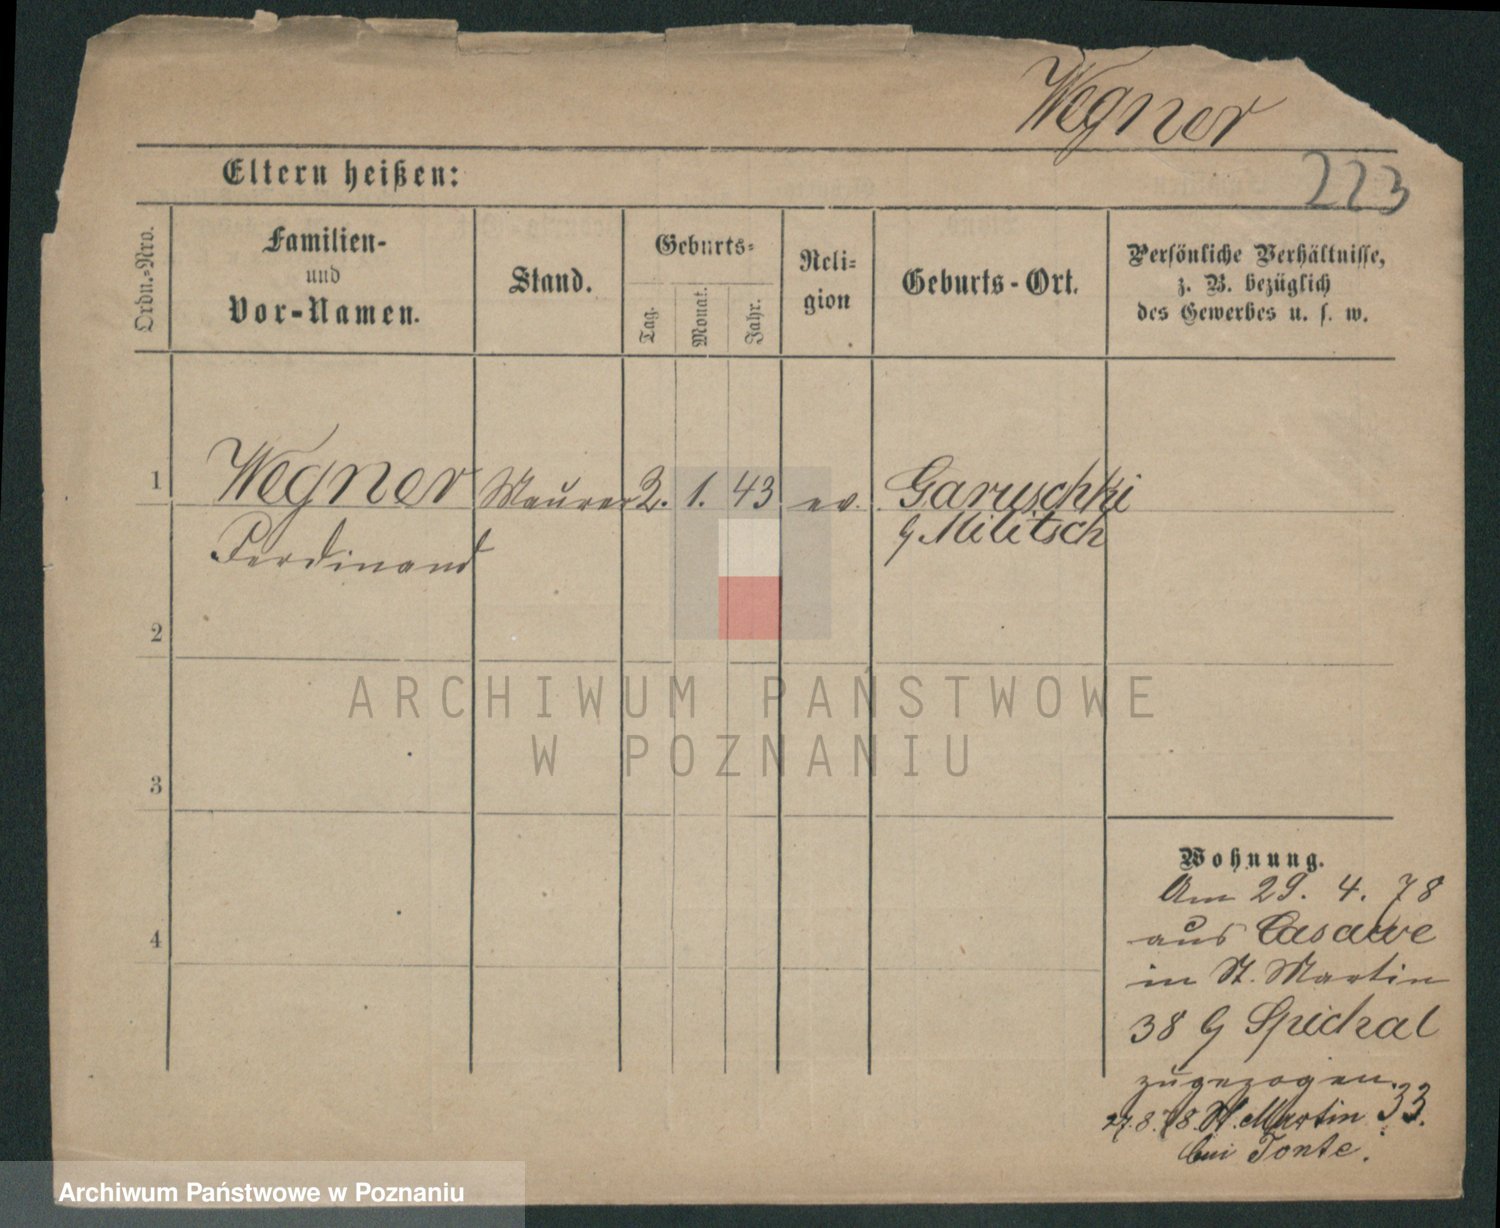 Wegner
Eltern heißen:
223
Ordn.-Nro.
Familien-
und
Vor-Namen.
Stand.
Geburts-
Tag.
Monat.
Jahr.
Reli-
gion
Geburts-Ort.
Persönliche Verhältnisse,
z. B. bezüglich
des Gewerbes u. s. w.
1
Wegner Maurer 2. 1. 43 ev. Garuschki
Ferdinand
b Militsch
2
ARCHIWUM PAŃSTWOWE
W POZNANIU
3
4
Wohnung.
Am 29. 4. 78
aus
in St. Martin
38 b Spichal
zugezogen.
27.8.78. St. Martin 33.
bei Tonte.
Archiwum Państwowe w Poznaniu